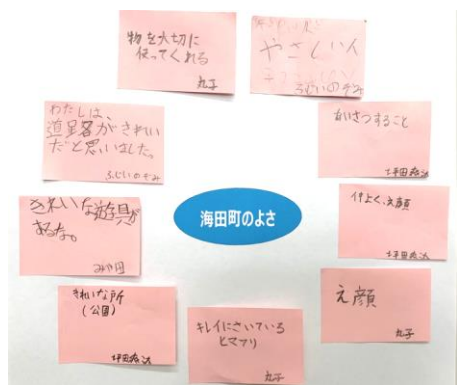 物を大切に
使ってくれる
丸子
やさしい人
ふじいのぞみ
わたしは、
道路がきれい
だと思いました。
ふじいのぞみ
あいさつすること
坪田
きれいな遊具が
あるな。
海田町のよさ
仲よく、え顔
坪田
きれいな所
(公園)
坪田
キレイにさいている
ヒマワリ
丸子
え顔
丸子